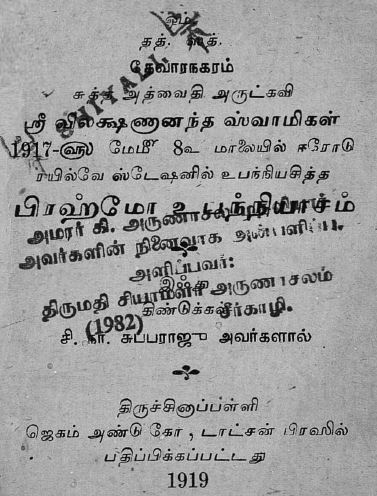 ஓம்.
தத். ஸத்.
தேவாரநகரம்
சுத்த அத்வைதி அருட்கவி
ஸ்ரீ விலக்ஷணானந்த ஸ்வாமிகள்
1917-ஹு மேமீ 8உ மாலையில் ஈரோடு
ரயில்வே ஸ்டேஷனில் உபந்நியசித்த
பிரஹ்மோ உபந்நியாசம்
அமரர் கி. அருணாசலம்
அவர்களின் நினைவாக அன்பளிப்பு.
அளிப்பவர்:
திருமதி சியாமளா அருணாசலம்
சீர்காழி.
திண்டுக்கல்
(1982)
சி. நா. சுப்பராஜு அவர்களால்
திருச்சினாப்பள்ளி
ஜெகம் அண்டு கோ, டாட்சன் பிரஸில்
பதிப்பிக்கப்பட்டது
1919